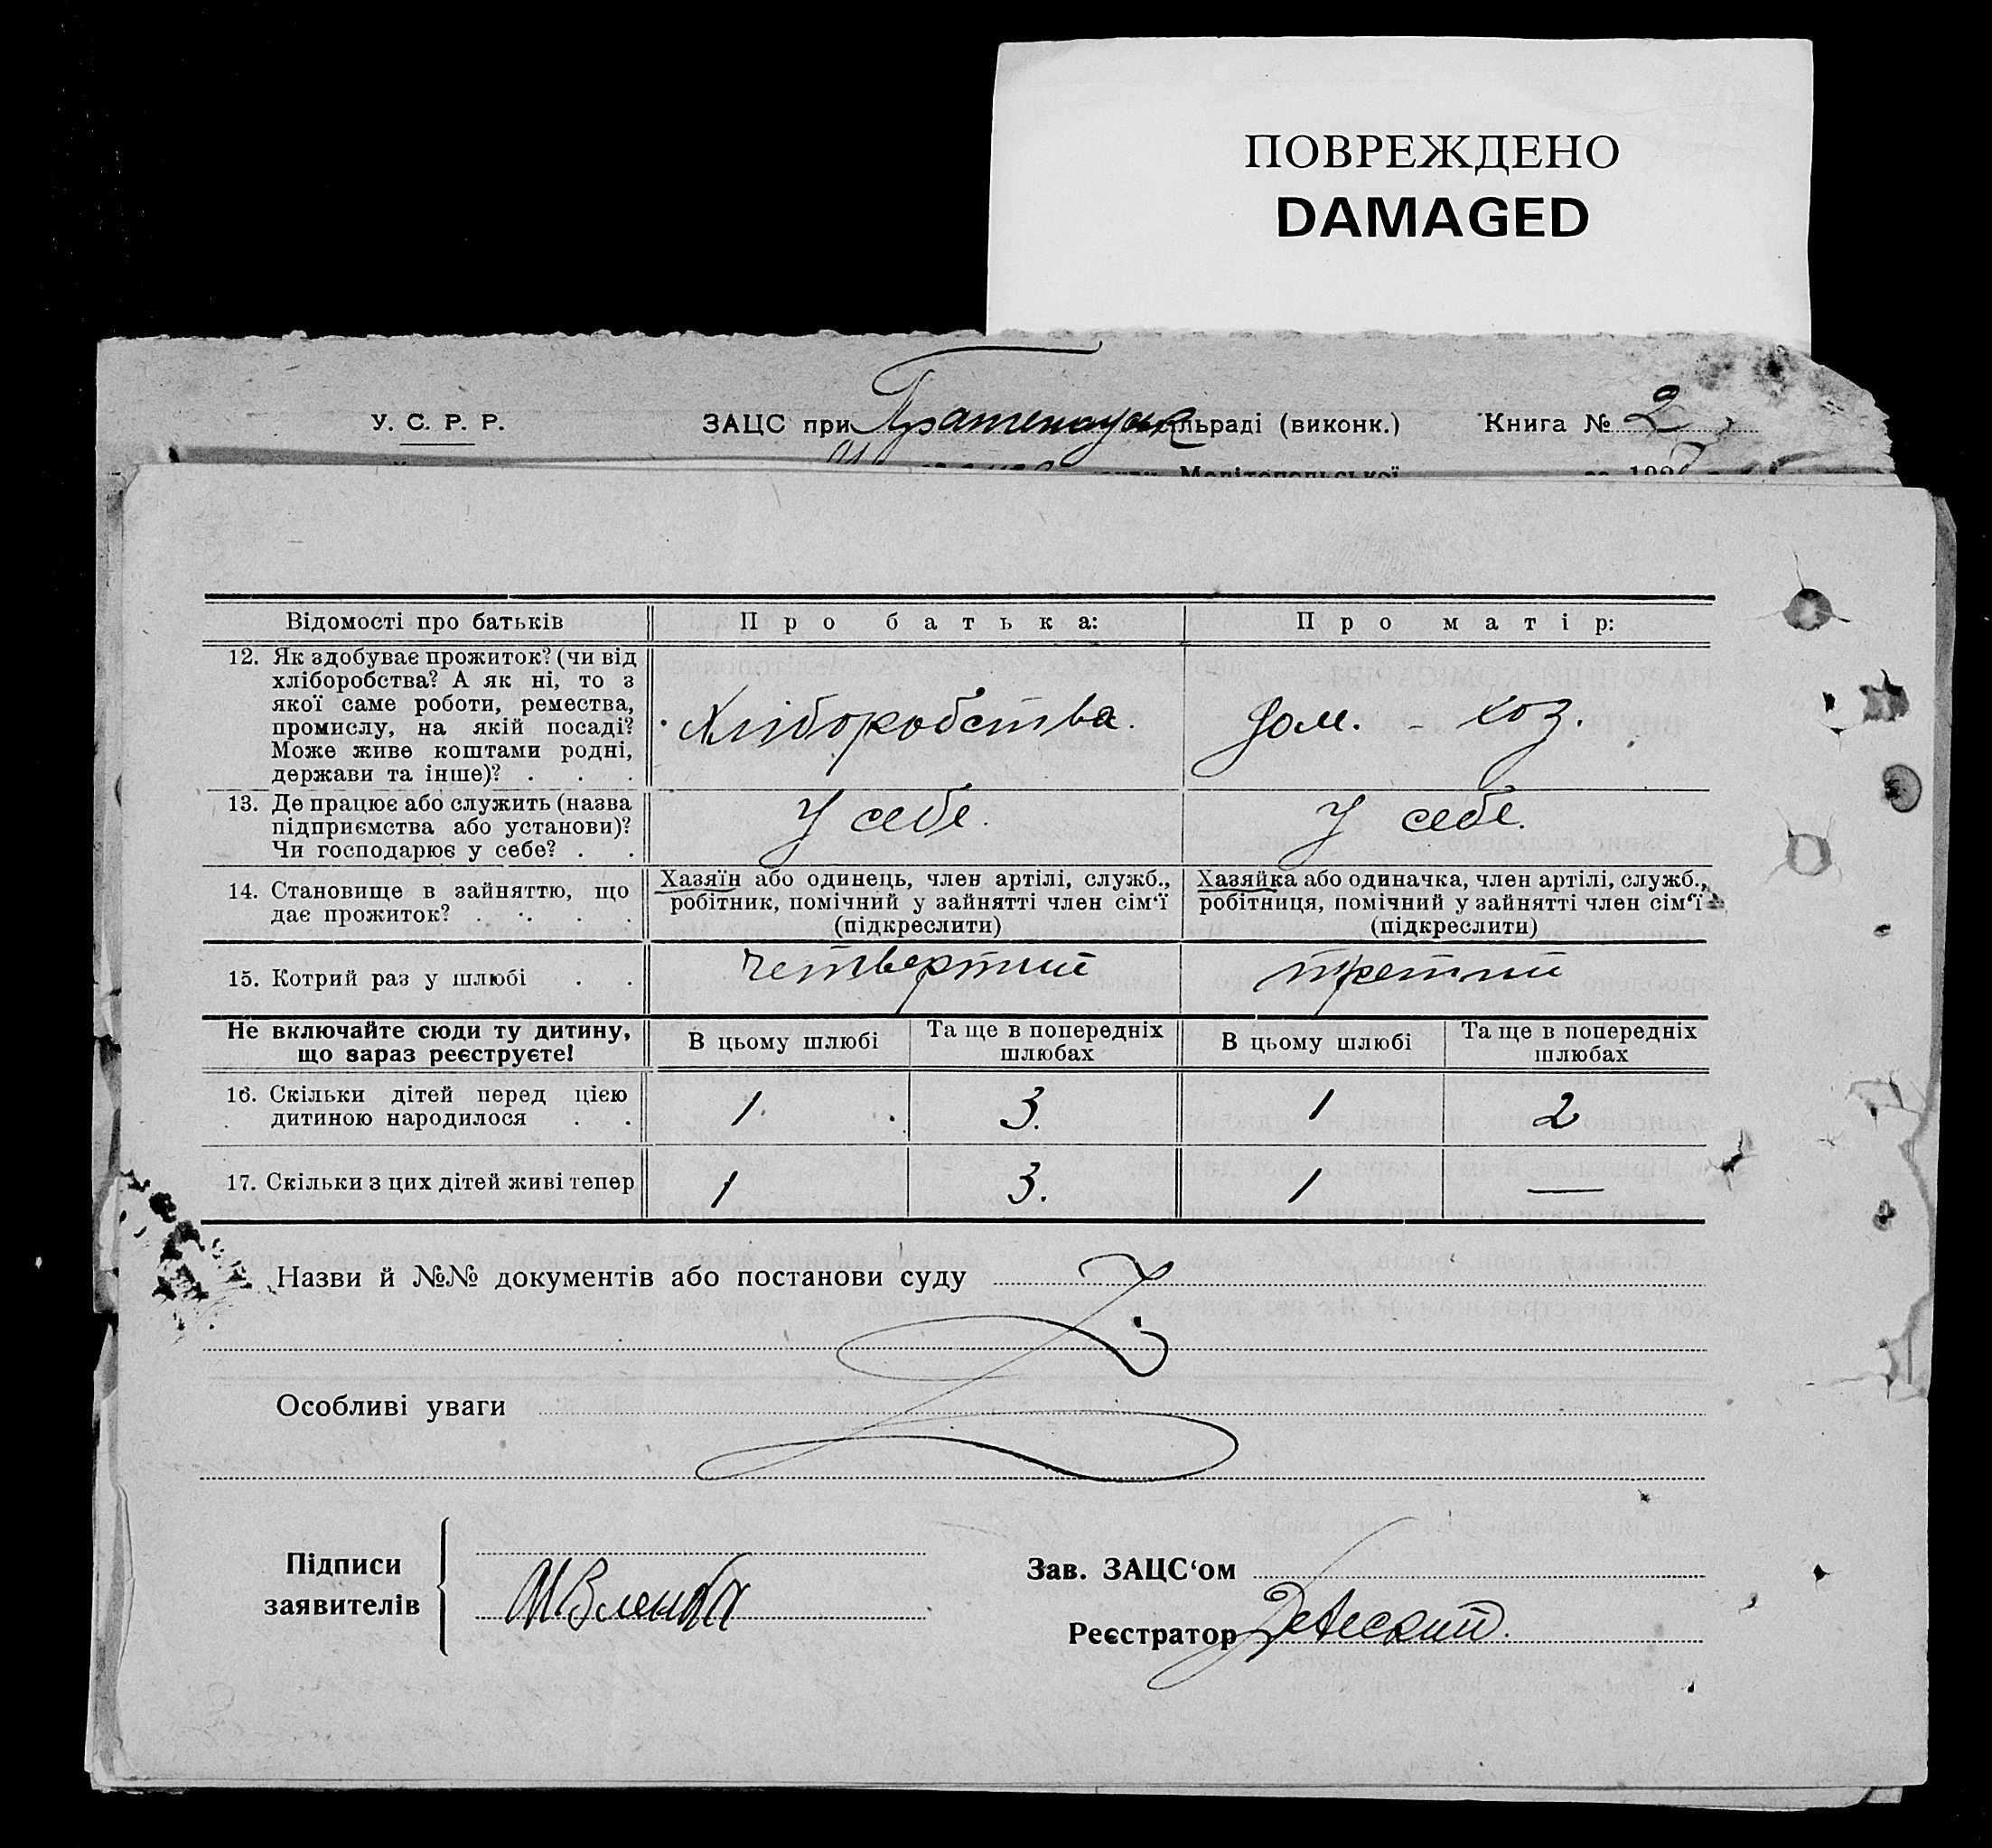 ПОВРЕЖДЕНО
DAMAGED
У. С. Р. Р.
ЗАЦС при
льраді (виконк.)
Книга № 2
Мелітопольської
за 192
Відомості про батьків
Про батька:
Про матір:
12. Як здобуває прожиток? (чи від
хліборобства? А як ні, то з
якої саме роботи, ремества,
промислу, на якій посаді?
Може живе коштами родні,
держави та інше)? . . .
Хліборобства.
дом. - хоз.
13. Де працює або служить (назва
підприємства або установи)?
Чи господарює у себе? . .
У себе.
У себе.
14. Становище в зайняттю, що
дає прожиток? . . . .
Хазяїн або одинець, член артілі, служб.,
робітник, помічний у зайнятті член сім'ї
(підкреслити)
Хазяйка або одиначка, член артілі, служб.,
робітниця, помічний у зайнятті член сім'ї
(підкреслити)
15. Котрий раз у шлюбі . .
четвертий
третий
Не включайте сюди ту дитину,
що зараз реєструєте!
В цьому шлюбі
Та ще в попередніх
шлюбах
В цьому шлюбі
Та ще в попередніх
шлюбах
16. Скільки дітей перед цією
дитиною народилося . .
1.
3.
1
2
17. Скільки з цих дітей живі тепер
1
3.
1
—
Назви й №№ документів або постанови суду
Особливі уваги
Підписи
заявителів
Зав. ЗАЦС'ом
Реєстратор